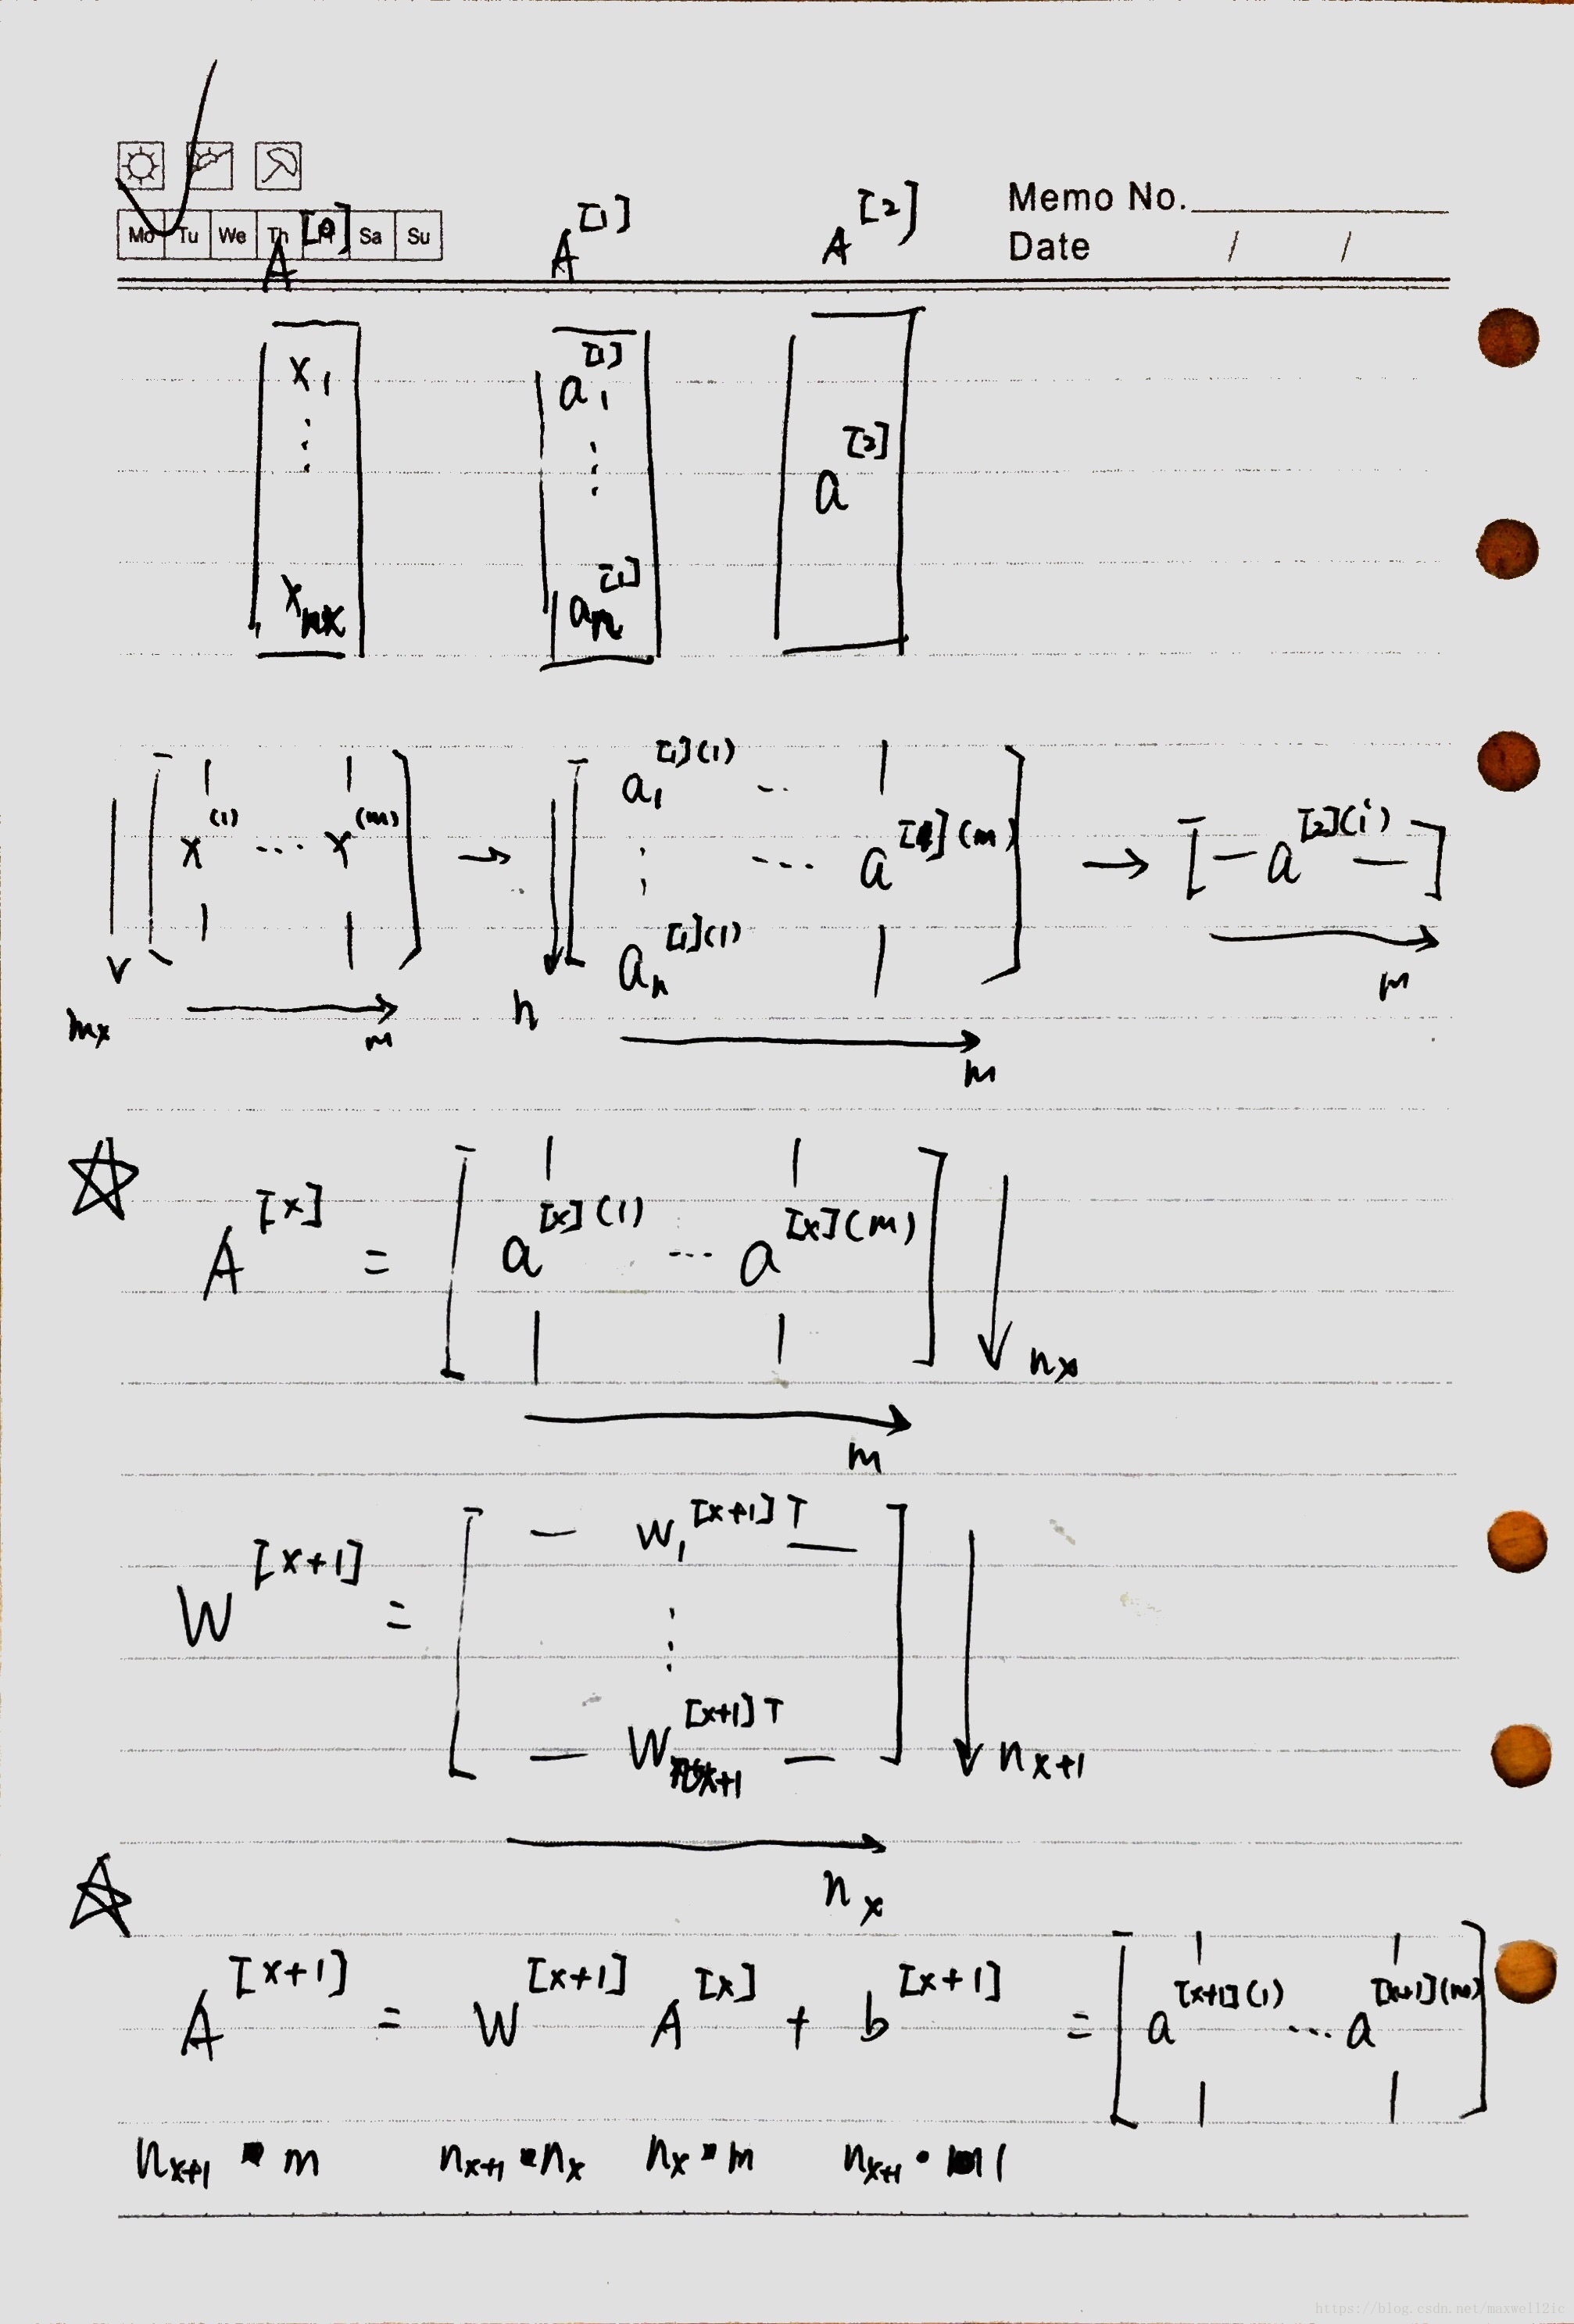 Memo No.
Mo Tu We Th Sa Su
Date / /
A^[0] A^[1] A^[2]
x_1 a_1^[1]
⋮ ⋮ a^[2]
x_nx a_n^[1]
[ x^(1) ... x^(m) ] → [ a_1^[1](1) ... a^[1](m) ] → [ — a^[2](i) — ]
⋮
a_n^[1](1)
n_x m n m m
☆ A^[x] = [ a^[x](1) ... a^[x](m) ] n_x
m
W^[x+1] = [ — w_1^[x+1]T —
⋮
— W_{n_x+1}^[x+1]T — ] n_x+1
n_x
☆ A^[x+1] = W^[x+1] A^[x] + b^[x+1] = [ a^[x+1](1) ... a^[x+1](m) ]
n_x+1 • m n_x+1 • n_x n_x • m n_x+1 • 1
https://blog.csdn.net/maxwell2ic